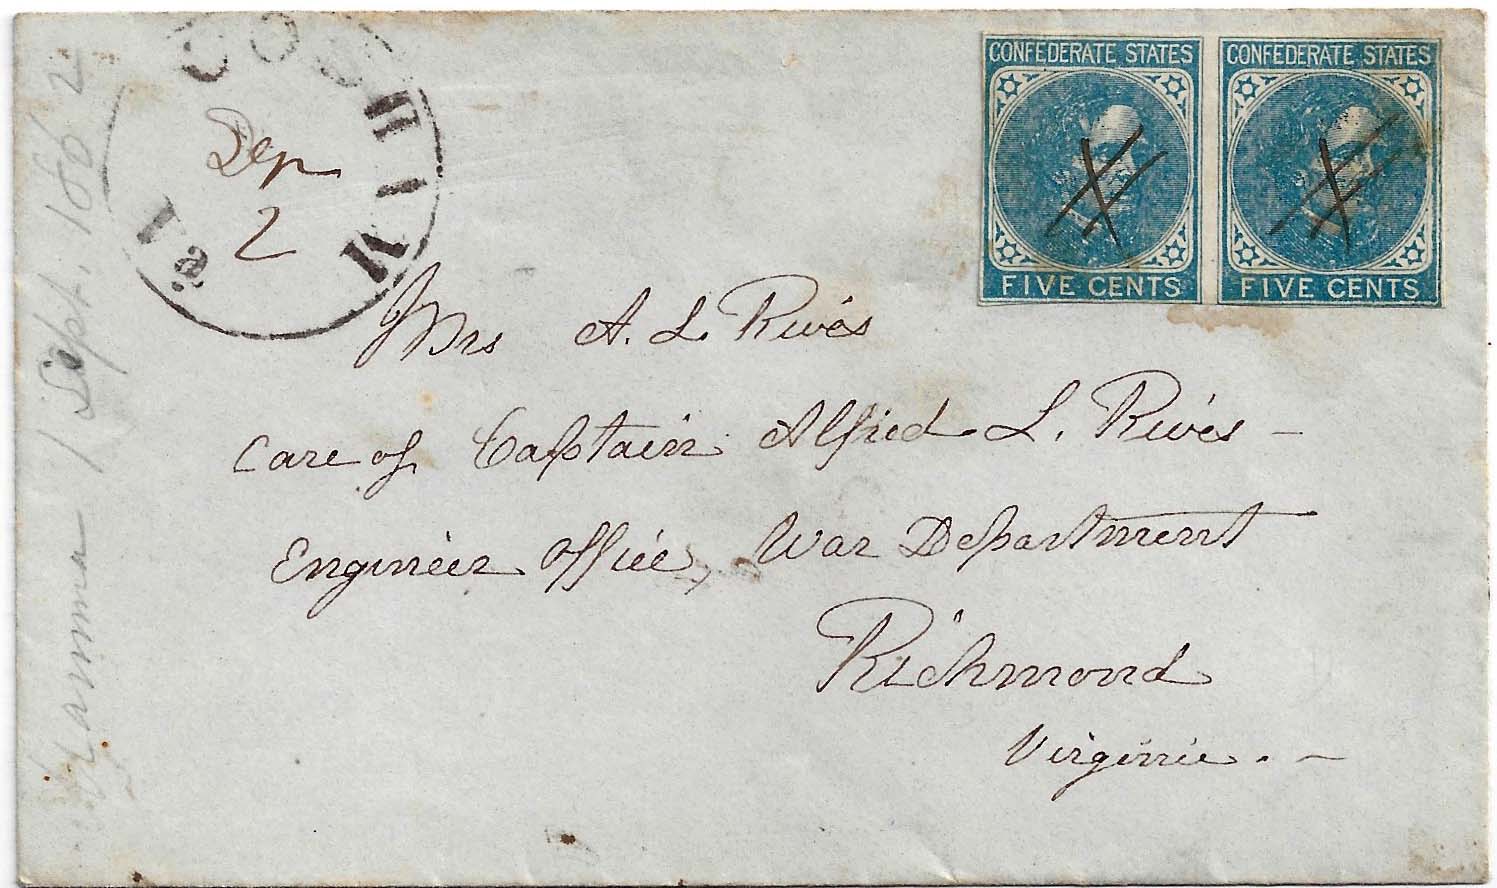 COCHIN
Sep
2
Va
CONFEDERATE STATES
FIVE CENTS
CONFEDERATE STATES
FIVE CENTS
Mrs A. L. Rivés
Care of Captain Alfred L. Rivés –
Engineer Office, War Department
Richmond
Virginie. –
1 Sept. 1862